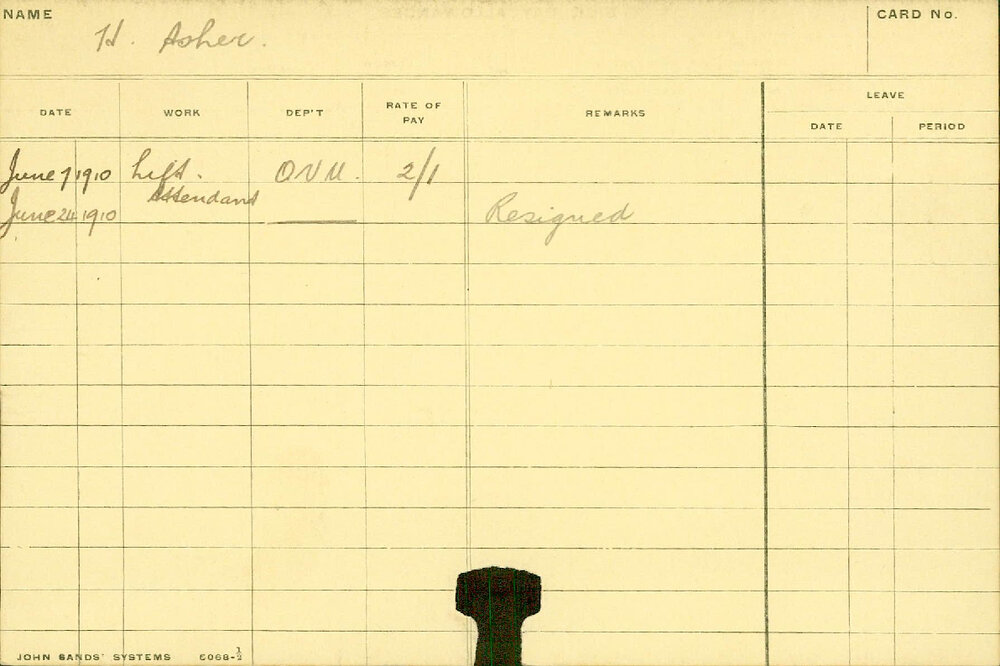 NAME H. Asher. CARD No.
LEAVE
DATE WORK DEP'T RATE OF PAY REMARKS DATE PERIOD
June 7 1910 Lift. Q.V.M. 2/1
Attendant
June 24 1910 Resigned
JOHN SANDS' SYSTEMS 6068-½